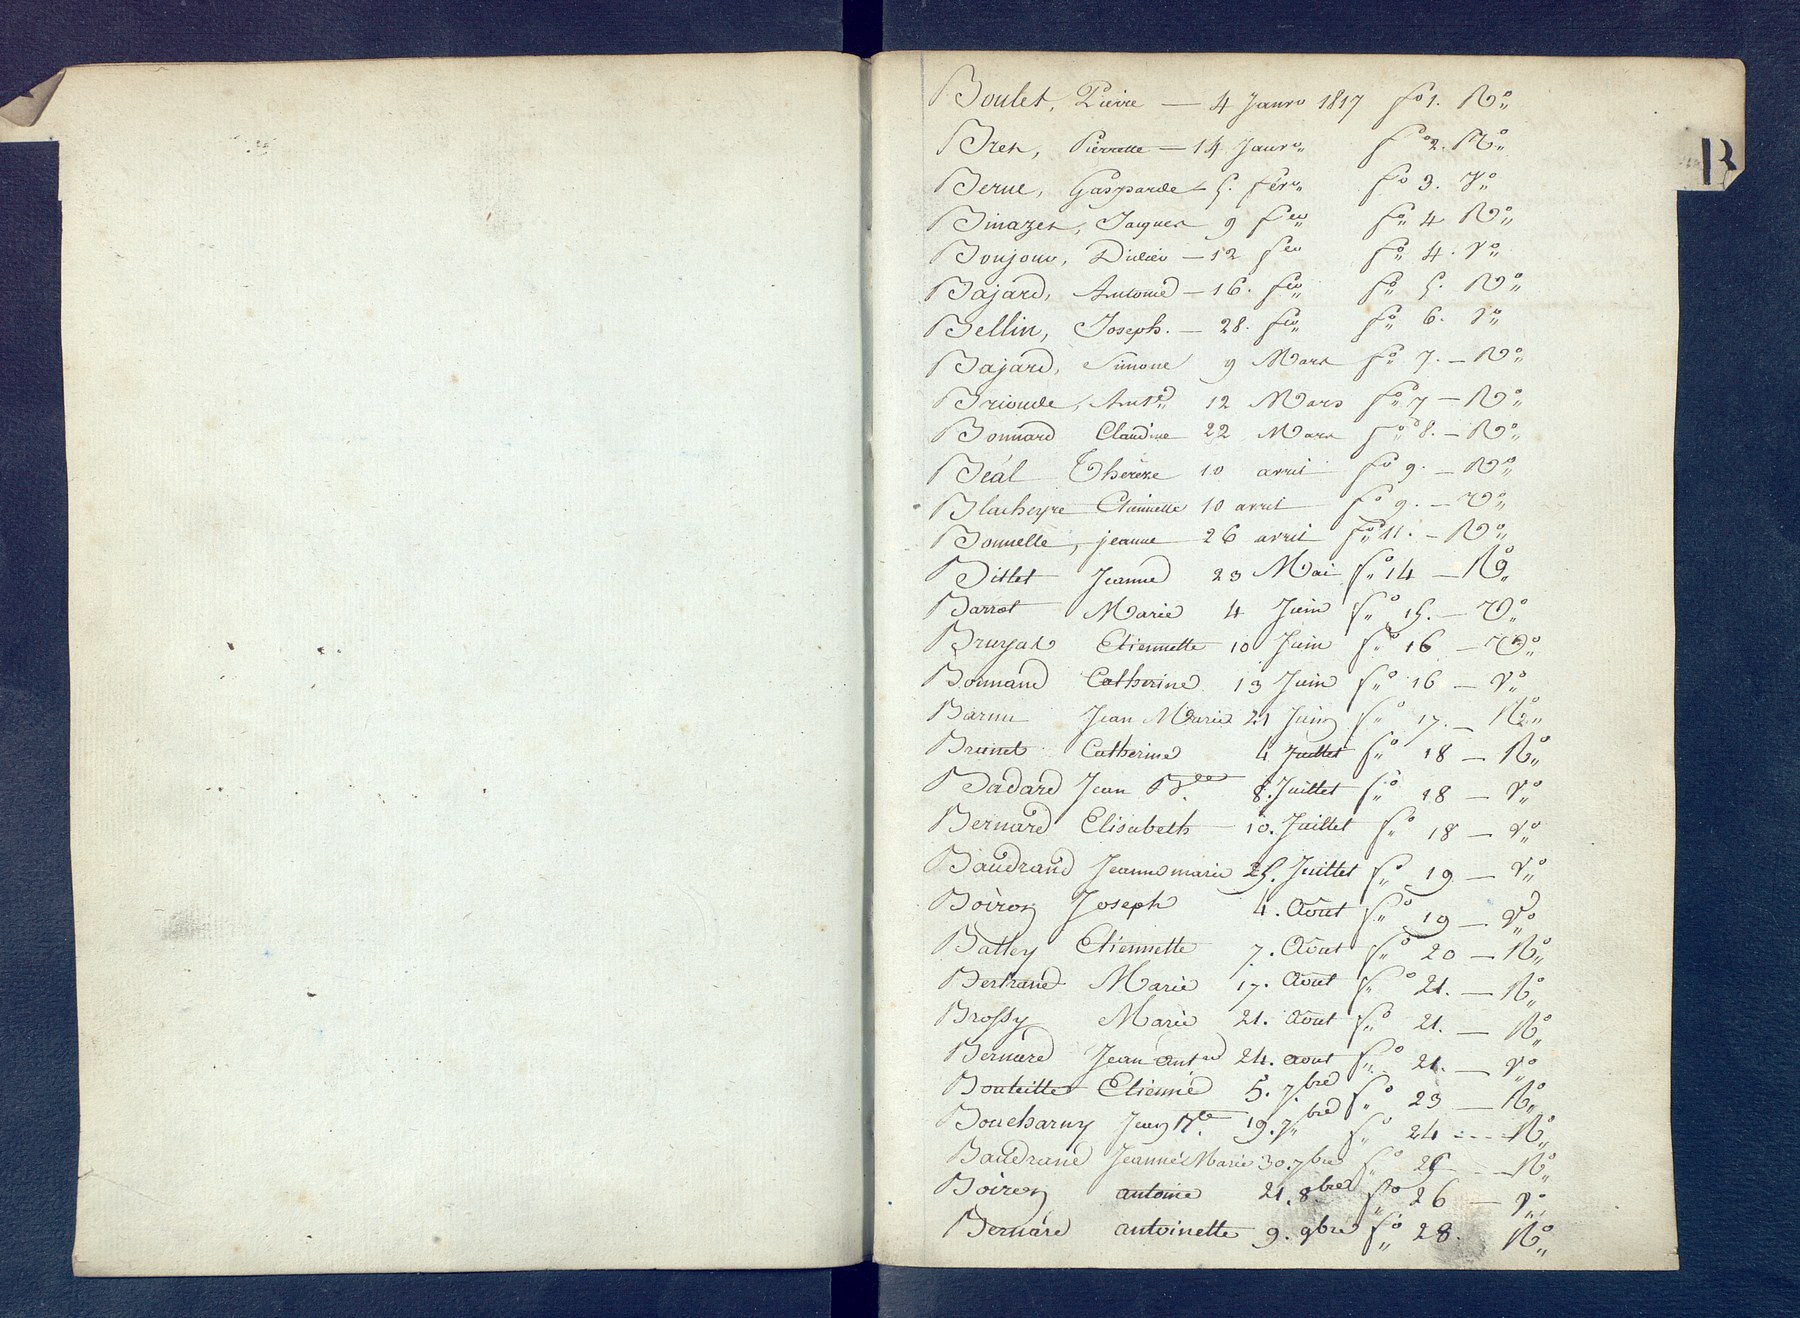 B
Boulet, Pierre — 4 Janvr 1817 fo 1. Ro
Bret, Pierrette — 14 Janvr fo 2. Ro
Berne, Gasparde 5. fevr fo 3. Vo
Binazet, Jaques 9 fev fo 4 Ro
Boujour, Didier — 12 fev fo 4. Vo
Bajard, Antoine — 16. fev fo 5. Ro
Bellin, Joseph. — 28. fev fo 6. Vo
Bajard, Simone 9 Mars fo 7. — Ro
Brioude, Antne 12 Mars fo 7 — Ro
Bonnard Claudine 22 Mars fo 8. — Ro
Béal Thérèze 10 avril fo 9. — Ro
Blacheyre Etiennette 10 avril fo 9. — Vo
Bonnelle, jeanne 26 avril fo 11. — Ro
Bittet Jeanne 23 Mai fo 14 — Ro
Barrot Marie 4 Juin fo 15. — Vo
Bruyas Etiennette 10 Juin fo 16 — Ro
Bonnand Catherine 13 Juin fo 16 — Vo
Barnu Jean Marie 21 Juin fo 17. — Ro
Brunet Catherine 4 Juillet fo 18 — Ro
Badard Jean Bte 8. Juillet fo 18 — Vo
Bernard Elisabeth 10. Juillet fo 18 — Vo
Baudrand Jeanne marie 25. Juillet fo 19 — Vo
Boiron Joseph 4. Août fo 19 — Vo
Batley Etiennette 7. Août fo 20 — Ro
Bertrand Marie 17. Août fo 21. — Ro
Brossy Marie 21. Août fo 21. — Ro
Bernard Jean Antne 24. aout fo 21. — Vo
Bouteille Etienne 5. 7bre fo 23 — Ro
Boucharny Jean Bte. 19. 7bre fo 24 --- Ro
Baudrand Jeanne Marie 30. 7bre fo 25 — Ro
Boiron antoine 21. 8bre fo 26 — Vo
Bernard antoinette 9. 9bre fo 28. Ro